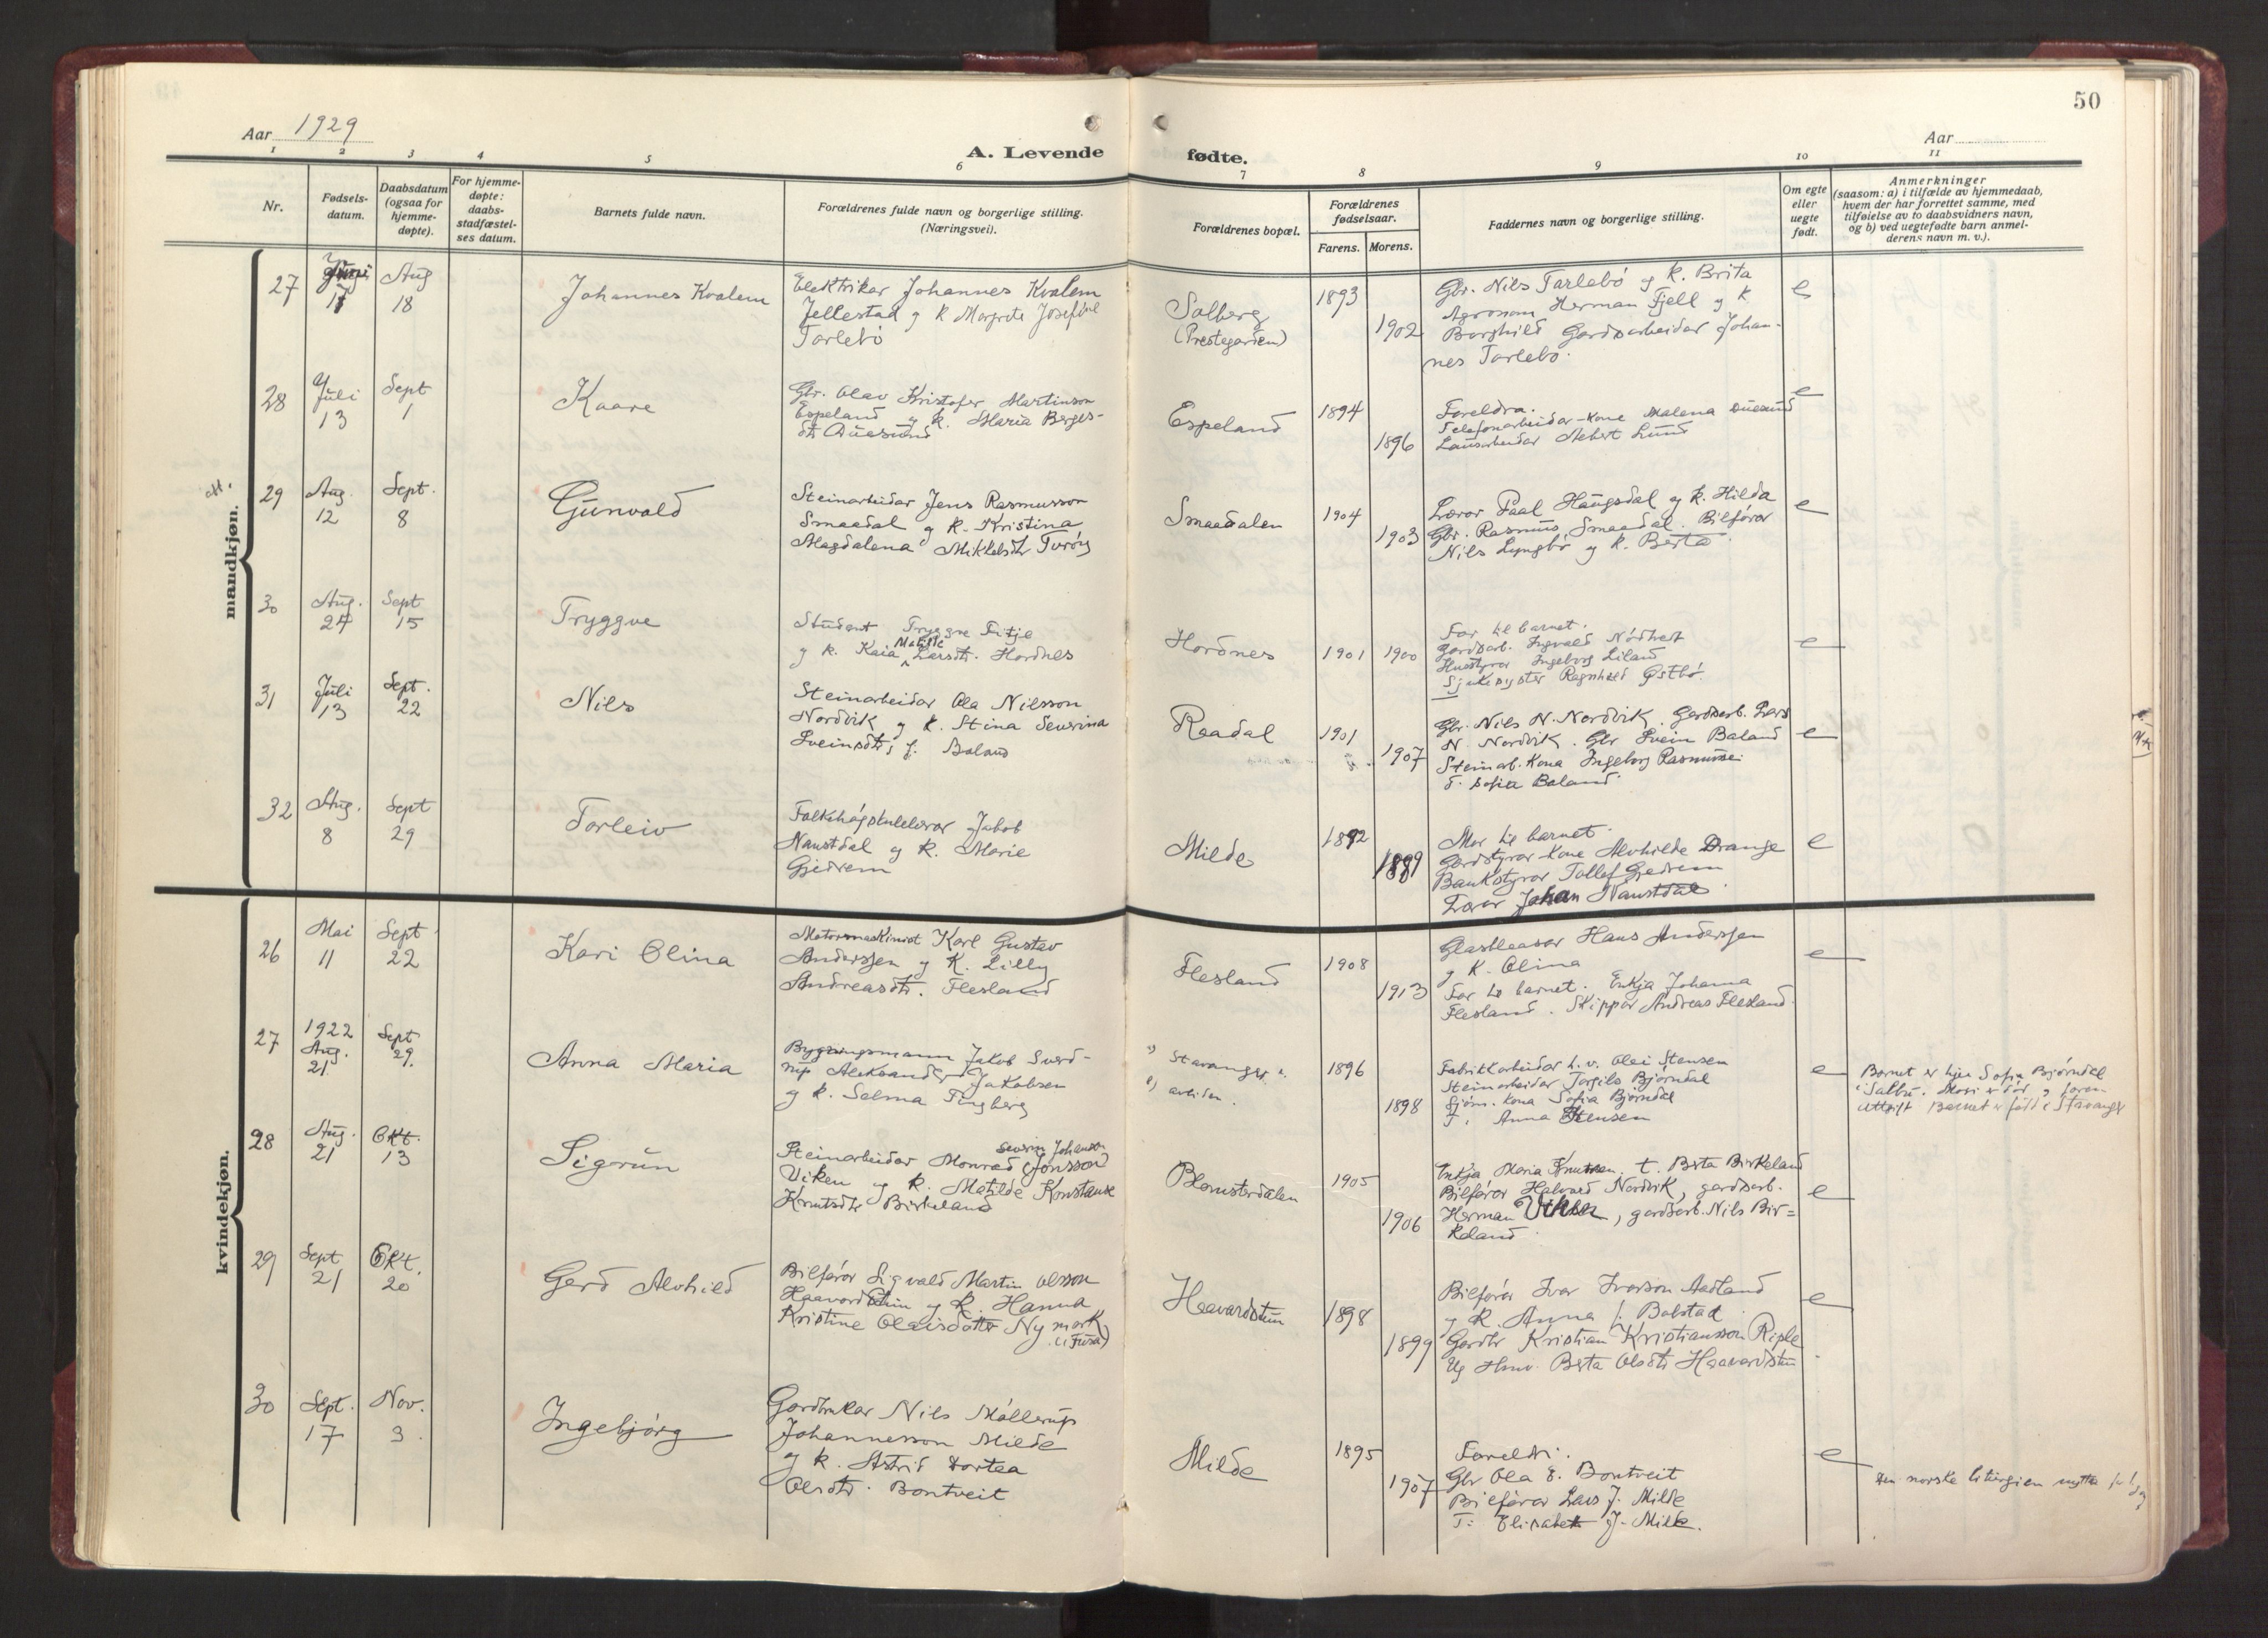 50
Aar 1929
A. Levende fødte.
Aar
1 2 3 4 5 6 7 8 9 10 11
Nr.
Fødsels-
datum.
Daabsdatum
(ogsaa for
hjemme-
døpte).
For hjemme-
døpte:
daabs-
stadfæstel-
ses datum.
Barnets fulde navn.
Forældrenes fulde navn og borgerlige stilling.
(Næringsvei).
Forældrenes bopæl.
Forældrenes
fødselsaar.
Farens. Morens.
Faddernes navn og borgerlige stilling.
Om egte
eller
uegte
født.
Anmerkninger
(saasom: a) i tilfælde av hjemmedaab,
hvem der har forrettet samme, med
tilføielse av to daabsvidners navn,
og b) ved uegtefødte barn anmel-
derens navn m. v.).
mandkjøn.
27
17
Aug
18
Johannes Kvalem
Elektrikar Johannes Kvalem
Jellestad og k Margrete Josefine
Tarlebö
Solberg
(Prestegarden)
1893
1902
Gbr. Nils Tarlebö og k. Brita
Agronom Herman Fjell og k
Borghild Gardsarbeidar Johan-
nes Tarlebö.
e
28
Juli
13
Sept
1
Kaare
Gbr. Olav Kristofer Martinson
Espeland og k. Maria Berges-
dtr Duesund
Espeland
1894
1896
Foreldra.
Telefonarbeidar-kone Malena Duesund
Lausarbeidar Lund
e
29
Aug.
12
Sept.
8
Gunvald
Steinarbeidar Jens Rasmusson
Smaadal og k. Kristina
Magdalena Mikkelsdtr
Smaadalen
1904
1903
Lærar Paal Haugsdal og k. Hilda
Gbr. Rasmus Smaadal. Bilförar
Nils Lyngbö og k. Berta.
e
30
Aug.
24
Sept
15
Tryggve
Student Tryggve Fitje
og k. Kaia Matilde Larsdtr. Hordnes
Hordnes
1901 1900
Far til barnet.
Gardsarb. Ingvald
Husstyrar Ingeborg Liland
Sjukesyster Ragnhild Østbö.
e
31
Juli
13
Sept.
22
Nils
Steinarbeidar Ola Nilsson
Nordvik og k. Stina Severina
Sveinsdtr f. Boland
Raadal
1901
1907
Gbr. Nils N. Nordvik. Gardsarb. Lars
N. Nordvik. Gbr Svein Baland
Steinarb. Kona Ingeborg
T. Sofia Baland.
e
32
Aug.
8
Sept
29
Torleiv
Folkehögskulelærar Jakob
Naustdal og k. Marie
Gjedrem
Milde
1892
1889
Mor til barnet.
Gardstyrar-kone Alvhilde Drange
Bankstyrar Tollef Gjedrem
Lærar Johan Naustdal.
e
kvindekjøn.
26
Mai
11
Sept
22
Kari Olina
Motormaskinist Karl Gustav
Anderssen og K. Lilly
Andreasdtr. Flesland
Flesland
1908
1913
Glasblaasar Hans Anderssen
og K. Olina
Far til barnet. Enkja Johanna
Flesland. Skippar Andreas Flesland.
e
27
1922
Aug.
21
Sept
29.
Anna Maria
Bygningsmann Jakob Sverd-
rup Aleksander Jakobsen
og k. Selma Tingberg
Stavanger
arbeidar.
1896
1898
Fabrikkarbeidar h. v. Olei Stensen
Steinarbeidar Torgils Bjørndal
Sjöm. kona Sofia Bjørndal
T. Anna Stensen
e
Barnet er hjaa Sofia Bjørndal
i Salbu. Mori er död og foren.
Utskift Barnet er född i Stavanger
28
Aug.
21
Okt.
13
Sigrun
Steinarbeidar Monrad Severin Johanson (Jonsson)
Viken og k. Matilde Konstanse
Knutsdtr Birkeland
Blomsterdalen
1905
1906
Enkja Maria Knutsen. t. Berta Birkeland
Bilförar Halvard Nordvik, gardsarb.
Herman Viken, gardsarb. Nils Bir=
keland.
e
29
Sept
21
Okt.
20
Gerd Alvhild
Bilförar Sigvald Martin Olsson
Haavardstun og k. Hanna
Kristine Olaisdatter Nymark
(i Fusa)
Haavardstun
1898
1899
Bilförar Ivar Ivarson Aadland
og k. Anna f. Bolstad.
Gardbr Kristian Kristiansson Riple
Ug Berta Olsdtr Haavardstun
e
30
Sept.
17
Nov.
3.
Ingebjörg
Gardbrukar Nils Möllerup
Johannesson Milde
og k. Astrid Dortea
Olsdtr. Bontveit
Milde
1895
1907
Foreldri.
Gbr Ola E. Bontveit
Bilförar Lars J. Milde
T. Elisabet J. Milde.
e
Den norske liturgien nytta